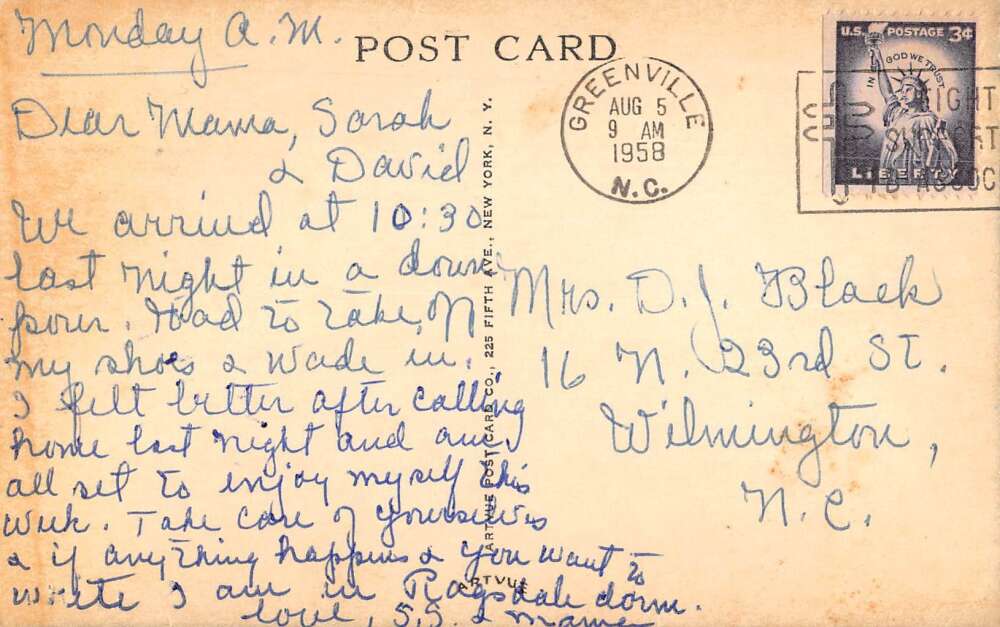 Monday A.M.
POST CARD
Dear Mama, Sarah
& David
We arrived at 10:30
last night in a down
pour. Had to take off
my shoes & wade in.
I felt better after calling
home last night and am
all set to enjoy myself this
week. Take care of yourselves
& if anything happens & you want to
write I am in Ragsdale dorm.
love, S.S. & Mama
ARTVUE POST CARD CO., 225 FIFTH AVE., NEW YORK, N. Y.
ARTVUE
GREENVILLE
AUG 5
9 AM
1958
N.C.
U.S. POSTAGE 3¢
IN GOD WE TRUST
LIBERTY
FIGHT
SUPPORT
TB ASSOC
Mrs. D. J. Black
16 N. 23rd St.
Wilmington,
N.C.